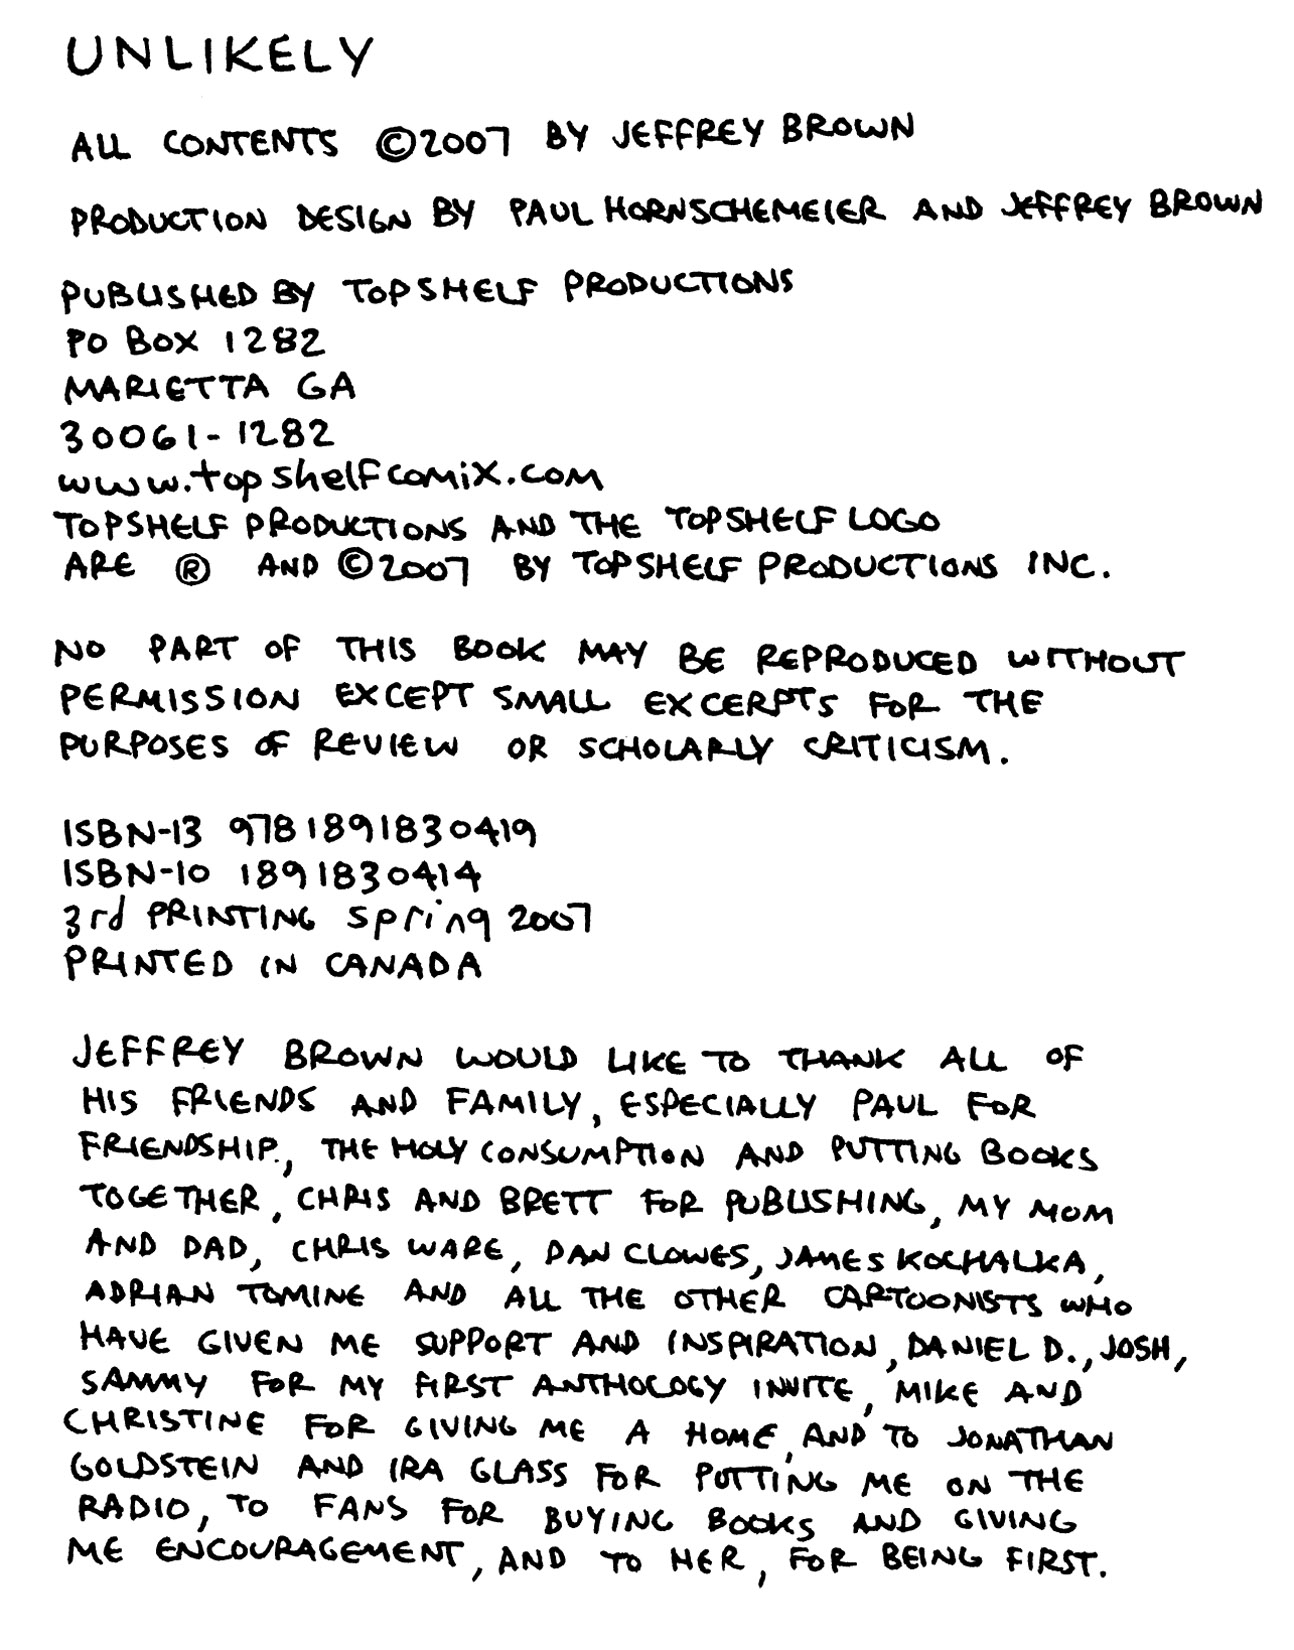 UNLIKELY
ALL CONTENTS ©2007 BY JEFFREY BROWN
PRODUCTION DESIGN BY PAUL HORNSCHEMEIER AND JEFFREY BROWN
PUBLISHED BY TOPSHELF PRODUCTIONS
PO BOX 1282
MARIETTA GA
30061-1282
www.topshelfcomix.com
TOPSHELF PRODUCTIONS AND THE TOPSHELF LOGO
ARE ® AND ©2007 BY TOPSHELF PRODUCTIONS INC.
NO PART OF THIS BOOK MAY BE REPRODUCED WITHOUT
PERMISSION EXCEPT SMALL EXCERPTS FOR THE
PURPOSES OF REVIEW OR SCHOLARLY CRITICISM.
ISBN-13 9781891830419
ISBN-10 1891830414
3rd PRINTING spring 2007
PRINTED IN CANADA
JEFFREY BROWN WOULD LIKE TO THANK ALL OF
HIS FRIENDS AND FAMILY, ESPECIALLY PAUL FOR
FRIENDSHIP, THE HOLY CONSUMPTION AND PUTTING BOOKS
TOGETHER, CHRIS AND BRETT FOR PUBLISHING, MY MOM
AND DAD, CHRIS WARE, DAN CLOWES, JAMES KOCHALKA,
ADRIAN TOMINE AND ALL THE OTHER CARTOONISTS WHO
HAVE GIVEN ME SUPPORT AND INSPIRATION, DANIEL D., JOSH,
SAMMY FOR MY FIRST ANTHOLOGY INVITE, MIKE AND
CHRISTINE FOR GIVING ME A HOME, AND TO JONATHAN
GOLDSTEIN AND IRA GLASS FOR PUTTING ME ON THE
RADIO, TO FANS FOR BUYING BOOKS AND GIVING
ME ENCOURAGEMENT, AND TO HER, FOR BEING FIRST.